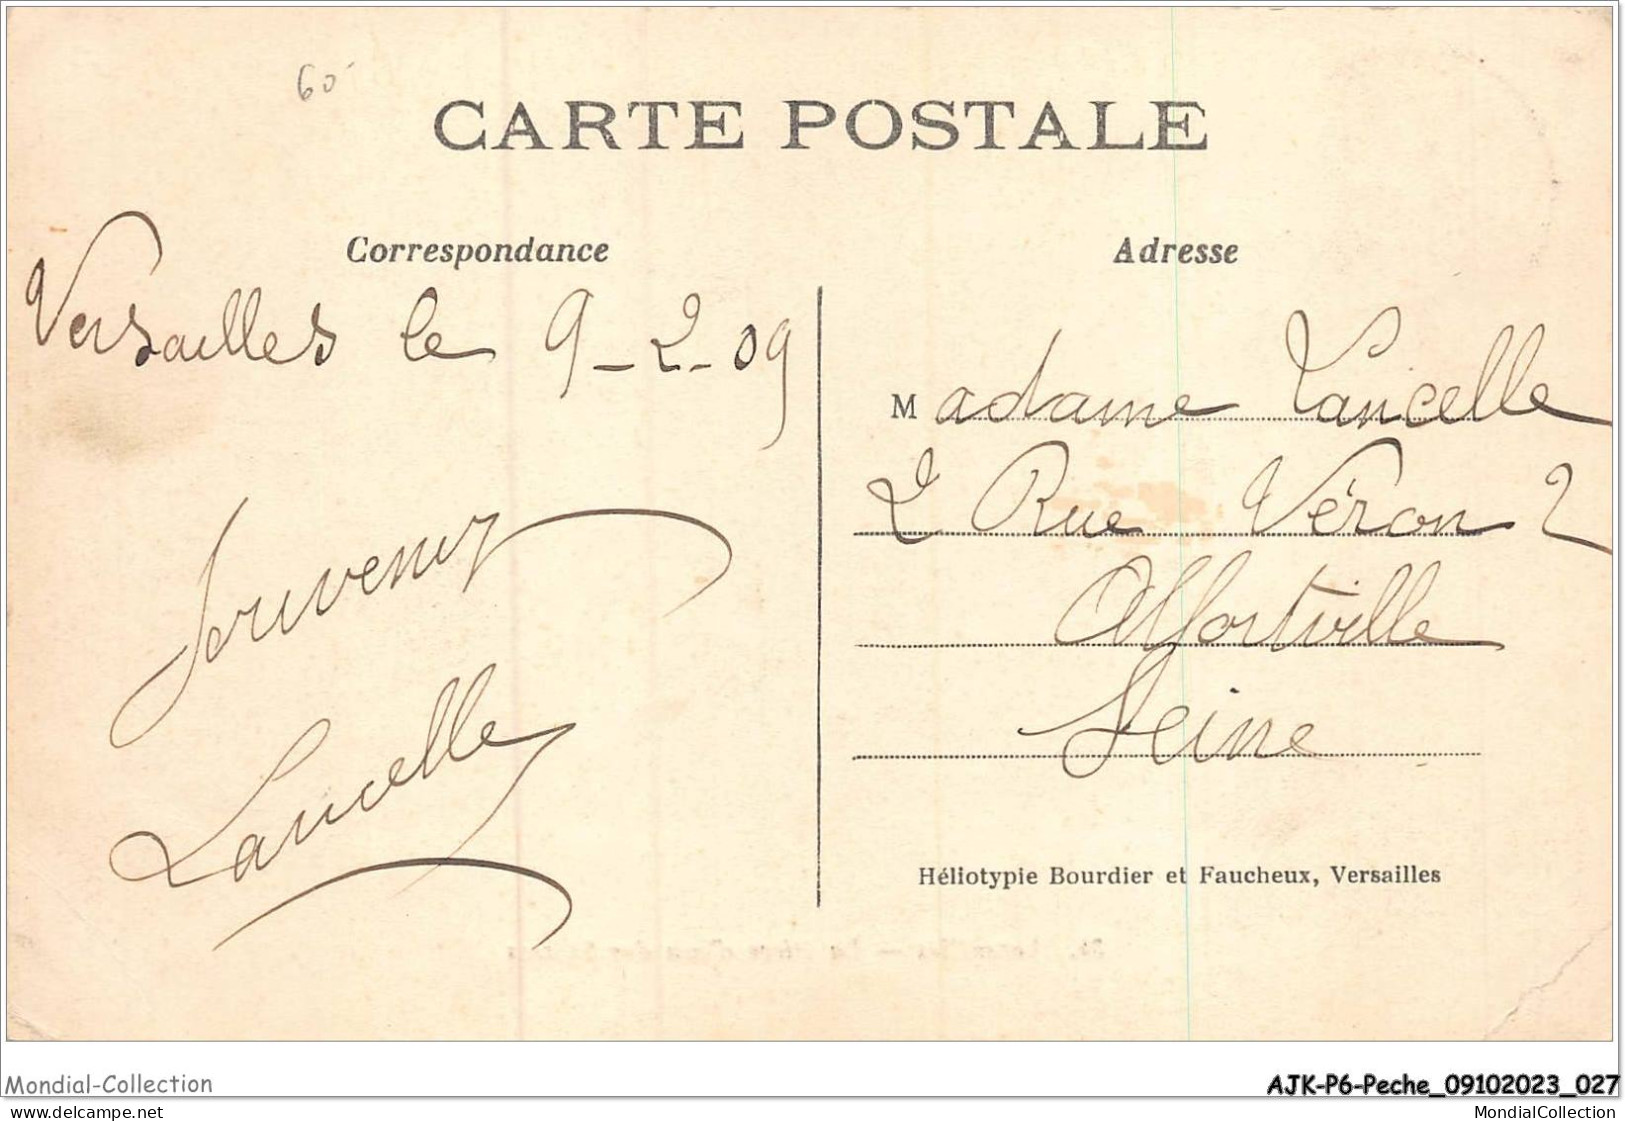 60
CARTE POSTALE
Correspondance
Versailles le 9-2-09
Souvenir
Lancelle
Adresse
Madame Lancelle
2 Rue Véron 2
Alfortville
Seine
Héliotypie Bourdier et Faucheux, Versailles
Mondial-Collection
AJK-P6-Peche_09102023_027
delcampe.net
MondialCollection